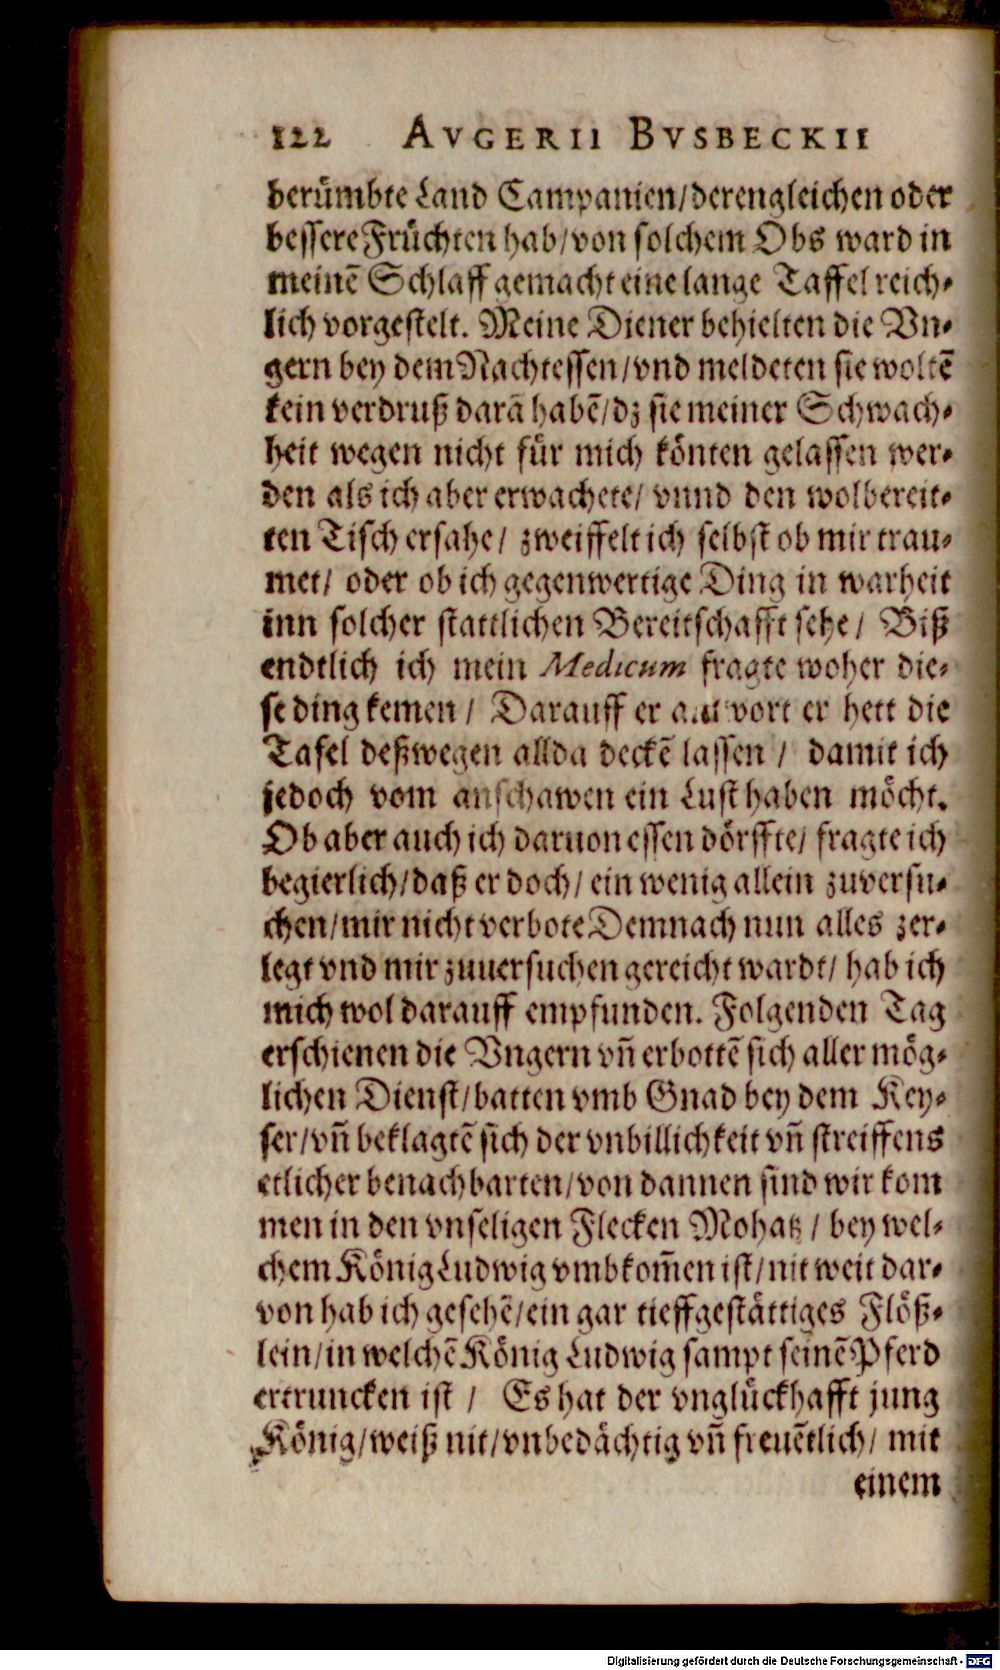 122 AVGERII BVSBECKII
berümbte Land Campanien/derengleichen oder
bessere Früchten hab/von solchem Obs ward in
meinẽ Schlaff gemacht eine lange Taffel reich-
lich vorgestelt. Meine Diener behielten die Vn-
gern bey dem Nachtessen/vnd meldeten sie woltẽ
kein verdruß darã habẽ/dz sie meiner Schwach-
heit wegen nicht für mich könten gelassen wer-
den als ich aber erwachete/ vnnd den wolbereit-
ten Tisch ersahe/ zweiffelt ich selbst ob mir trau-
met/ oder ob ich gegenwertige Ding in warheit
inn solcher stattlichen Bereitschafft sehe/ Biß
endtlich ich mein Medicum fragte woher die-
se ding kemen/ Darauff er antwort er hett die
Tafel deßwegen allda deckẽ lassen/ damit ich
jedoch vom anschawen ein Lust haben möcht.
Ob aber auch ich daruon essen dörffte/ fragte ich
begierlich/daß er doch/ ein wenig allein zuversu-
chen/mir nicht verbote Demnach nun alles zer-
legt vnd mir zuuersuchen gereicht wardt/ hab ich
mich wol darauff empfunden. Folgenden Tag
erschienen die Vngern vñ erbottẽ sich aller mög-
lichen Dienst/batten vmb Gnad bey dem Key-
ser/vñ beklagtẽ sich der vnbillichkeit vñ streiffens
etlicher benachbarten/von dannen sind wir kom
men in den vnseligen Flecken Mohatz/ bey wel-
chem König Ludwig vmbkom̃en ist/nit weit dar-
von hab ich gesehẽ/ein gar tieffgestättiges Flöß-
lein/in welchẽ König Ludwig sampt seinẽ Pferd
ertruncken ist/ Es hat der vnglückhafft jung
König/weiß nit/vnbedächtig vñ freuẽtlich/ mit
einem
Digitalisierung gefördert durch die Deutsche Forschungsgemeinschaft - DFG